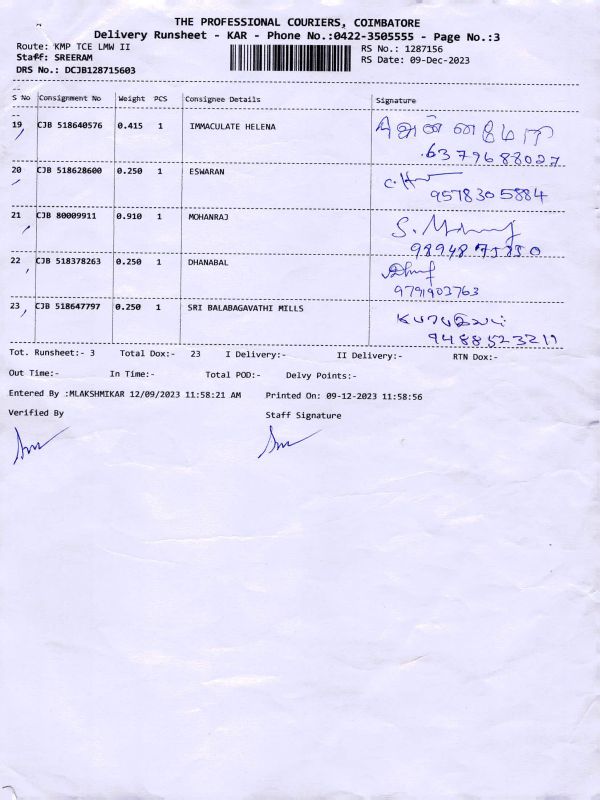 THE PROFESSIONAL COURIERS, COIMBATORE
Delivery Runsheet - KAR - Phone No.:0422-3505555 - Page No.:3
Route: KMP TCE LMW II RS No.: 1287156
Staff: SREERAM RS Date: 09-Dec-2023
DRS No.: DCJB128715603
S No Consignment No Weight PCS Consignee Details Signature
19 CJB 518640576 0.415 1 IMMACULATE HELENA
6379688027
20 CJB 518628600 0.250 1 ESWARAN
9578305884
21 CJB 80009911 0.910 1 MOHANRAJ
9894875850
22 CJB 518378263 0.250 1 DHANABAL
9791903763
23 CJB 518647797 0.250 1 SRI BALABAGAVATHI MILLS
9488523211
Tot. Runsheet:- 3 Total Dox:- 23 I Delivery:- II Delivery:- RTN Dox:-
Out Time:- In Time:- Total POD:- Delvy Points:-
Entered By :MLAKSHMIKAR 12/09/2023 11:58:21 AM Printed On: 09-12-2023 11:58:56
Verified By Staff Signature